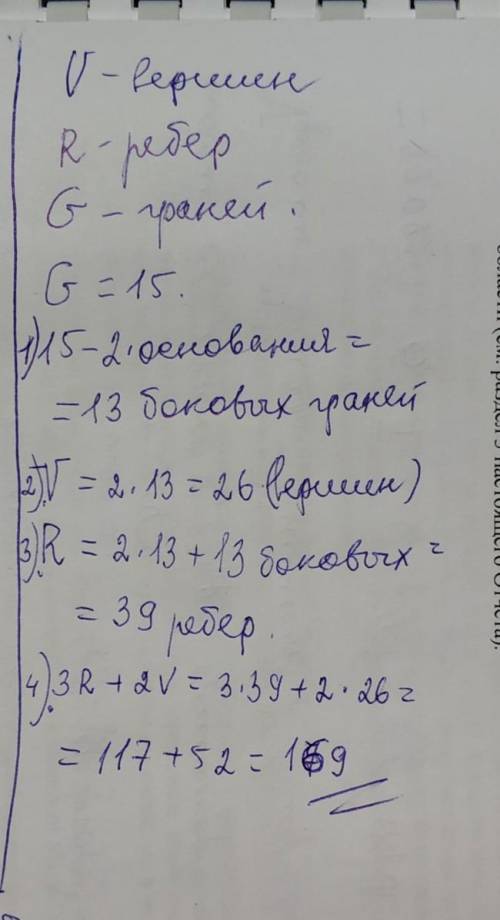 V - вершин
R - ребер
G - граней.
G = 15.
1) 15 - 2·основания =
= 13 боковых граней
2). V = 2·13 = 26 (вершин)
3). R = 2·13 + 13 боковых =
= 39 ребер.
4). 3R + 2V = 3·39 + 2·26 =
= 117 + 52 = 169